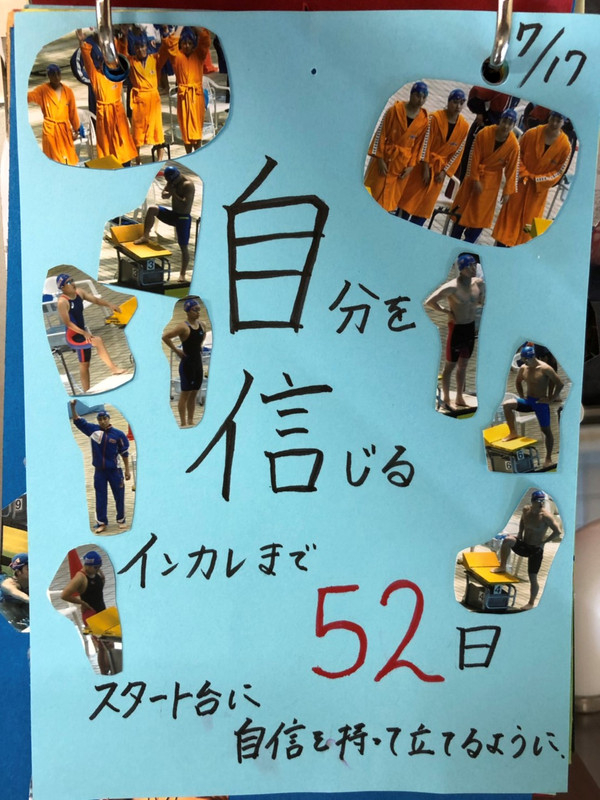 7/17
自分を
信じる
インカレまで
52日
スタート台に
自信を持って立てるように、